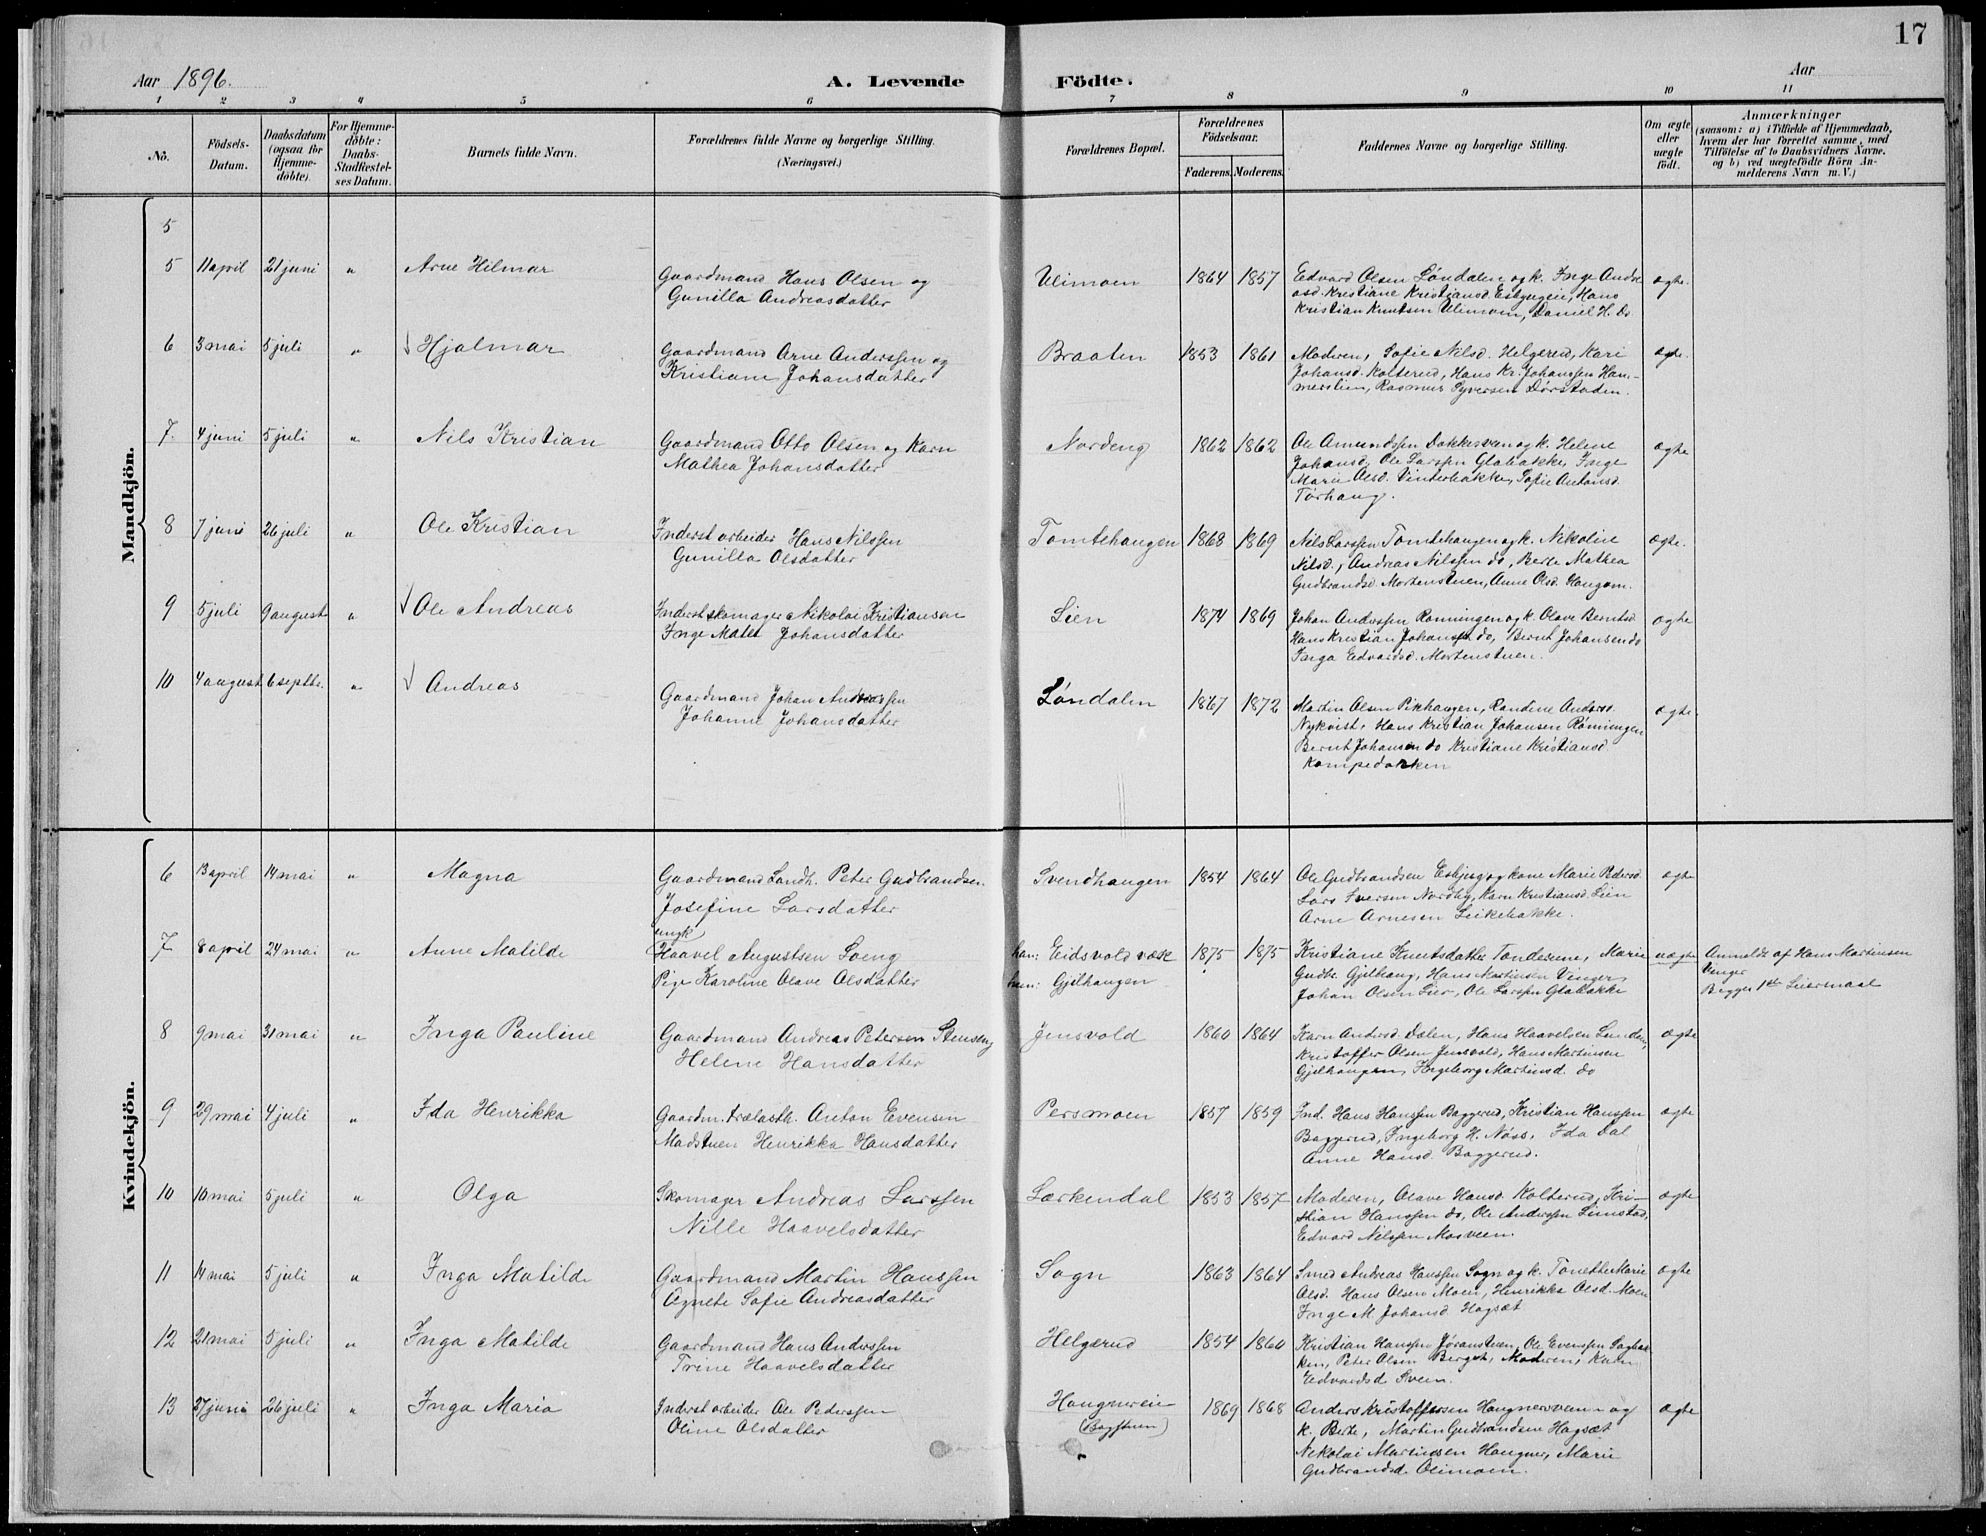 17
Aar 1896.
A. Levende Födte.
Aar
1 2 3 4 5 6 7 8 9 10 11
No.
Födsels-
Datum.
Daabsdatum
(ogsaa for
Hjemme-
döbte).
For Hjemme-
döbte:
Daabs-
Stadfæstel-
ses Datum.
Barnets fulde Navn.
Forældrenes fulde Navne og borgerlige Stilling.
(Næringsvei.)
Forældrenes Bopæl.
Forældrenes
Födselsaar.
Faderens. Moderens.
Faddernes Navne og borgerlige Stilling.
Om ægte
eller
uægte
födt.
Anmærkninger
(saasom: a) i Tilfælde af Hjemmedaab,
hvem der har forrettet samme, med
Tilföielse af to Daabsvidners Navne.
og b) ved uægtefödte Börn An-
melderens Navn m. V.)
Mandkjön.
5
5 11 april 21 juni " Arne Hilmar
Gaardmand Hans Olsen og
Gunilla Andreasdatter
Ulimoen 1864 1857
Edvard Olsen Løndalen og k. Inge Andre
asd. Kristiane Kristiansd. Esbyugen, Hans
Kristian Knutsen Ulimoen, Daniel H. do
ægte.
6 3 mai 5 juli " Hjalmar
Gaardmand Arne Anderssen og
Kristiane Johansdatter
Braaten 1853 1861
Moderen, Sofie Nilsd. Helgerud, Kari
Johansd. Kolterud, Hans Kr. Johanssen Ham-
merstien, Rasmus Syversen Dørstaden.
ægte.
7. 4 juni 5 juli " Nils Kristian
Gaardmand Otto Olsen og Karn
Mathea Johansdatter
Nordeng 1862 1862
Ole Amundssen Dokkesveen og k. Helene
Johansd. Ole Larssen Glabakke, Inge
Marie Olsd. Vinterbakke, Sofie Antonsd.
Torhaug.
ægte
8 7 juni 26 juli " Ole Kristian
Inderst arbeider Hans Nilssen
Gunilla Olsdatter
Tomtehaugen 1868 1869
Nils Larssen Tomtehaugen og k. Nikoline
Nilsd., Andreas Nilssen do, Berte Mathea
Gudbrandsd. Mortenstuen, Anne Olsd. Haugom.
ægte.
9 5 juli 9 august " Ole Andreas
Inderst skomager Nikolai Kristiansen
Inge Matea Johansdatter
Lien 1874 1869
Johan Anderssen Rønningen og k. Olave Berntsd.
Hans Kristian Johanssen do, Bernt Johansen do
Inga Edvardsd. Mortenstuen.
ægte
10 4 august 6 septbr. " Andreas
Gaardmand Johan Andreassen
Johanne Johansdatter
Løndalen 1867 1872
Martin Olsen Pikhaugen, Randine Andersd.
Nykvist, Hans Kristian Johansen Rønningen
Bernt Johansen do Kristiane Kristiansd.
Kampedokken
ægte.
Kvindekjön.
6 13 april 14 mai " Magna
Gaardmand Landh. Peter Gudbrandsen
Josefine Larsdatter
Svendhaugen 1854 1864
Ole Gudbrandsen Esbjug og kone Marie Pedersd
Lars Iversen Nordby, Karn Kristiansd. Lien
Arne Arnesen Leikebakke.
ægte
7 8 april 24 mai " Anne Matilde
ungk
Haavel Augustsen Soeng
Pige Karoline Olave Olsdatter
han: Eidsvold værk
hun: Gjelhaugen
1875 1875
Kristiane Knutsdatter Tonderene, Marie
Gudbr. Gjelhaug, Hans Martinsen Vinger,
Johan Olsen Lier, Ole Larssen Glabakke
uægte
Anmeldt af Hans Martinsen
Vinger
Begges 1ste Leiermaal
8 9 mai 31 mai " Inga Pauline
Gaardmand Andreas Petersen Stenseng
Helene Hansdatter
Jensvold 1860 1864
Karn Andersd. Dalen, Hans Haavelsen Lunden,
Kristoffer Olsen Jensvold, Hans Martinsen
Gjelhaugen, Ingeborg Martinsd. do
ægte
9 29 mai 4 juli " Ida Henrikka
Gaardm. trælasth. Anton Evensen
Madstuen Henrikka Hansdatter
Persmoen 1857 1859
Ind. Hans Hanssen Baggerud, Kristian Hanssen
Baggerud, Ingeborg H. Næss, Ida Dal
Anne Hansd. Baggerud.
ægte
10 10 mai 5 juli " Olga
Skomager Andreas Larssen
Nille Haavelsdatter
Lærkendal 1853 1857
Moderen, Olave Hansd. Kolterud, Kri-
stian Hanssen do, Ole Anderssen Linstad,
Edvard Nilssen Mosveen.
ægte
11 14 mai 5 juli " Inga Matilde
Gaardmand Martin Hanssen
Agnete Sofie Andreasdatter
Sogn 1863 1864
Smed Andreas Hanssen Sogn og k. Tonette Marie
Olsd. Hans Olsen Moen, Henrikka Olsd. Moen
Inge M. Johansd. Hagsæt
ægte
12 21 mai 5 juli " Inga Matilde
Gaardmand Hans Anderssen
Trine Haavelsdatter
Helgerud 1854 1860
Kristian Hanssen Jøranstuen, Ole Evenssen Sagbak
ken, Peter Olsen Berget, Moderen, Karn
Edvardsd Sveen.
ægte
13 27 juni 26 juli " Inga Maria
Inderst arbeider Ole Pederssen
Oline Olsdatter
Haugnereie
(Bagstuen)
1869 1868
Anders Kristoffersen Haugnersveen og
k. Berte, Martin Gudbrandsen Hagsæt
Nikolai Martinsen Haugner, Marie
Gudbrandsd. Olimoen.
ægte